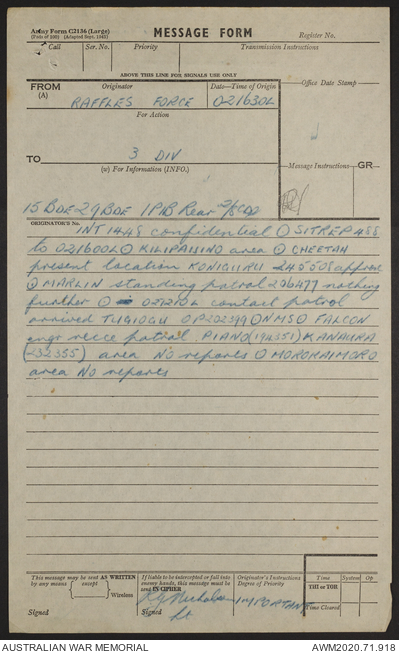 Army Form C2136 (Large)
(Pads of 100) (Adapted Sept. 1942)
MESSAGE FORM
Register No.
Call Ser. No. Priority Transmission Instructions
ABOVE THIS LINE FOR SIGNALS USE ONLY
FROM
(A)
Originator
Date—Time of Origin
Office Date Stamp
RAFFLES FORCE 021630L
For Action
TO 3 DIV
(w) For Information (INFO.)
Message Instructions GR
15 BDE 29 BDE 1 PIB Rear
ORIGINATOR'S No.
INT 1449 confidential ⊙ SITREP 488
to 021600L ⊙ KILIPAISINO area ⊙ CHEETAH
present location KONIGURU 245508 approx
⊙ MARLIN standing patrol 206477 nothing
further ⊙ contact patrol
arrived TUGIOGU OP 202399 ⊙ NMS ⊙ FALCON
engr recce patrol PIANO (194351) KANAURA
(232355) area No reports ⊙ MOROKAIMORO
area No reports
This message may be sent AS WRITTEN
by any means (except )
Wireless
Signed
If liable to be intercepted or fall into
enemy hands, this message must be
sent IN CIPHER
Signed
Lt
Originator's Instructions
Degree of Priority
IMPORTANT
Time System Op
THI or TOR
Time Cleared
AUSTRALIAN WAR MEMORIAL
AWM2020.71.918